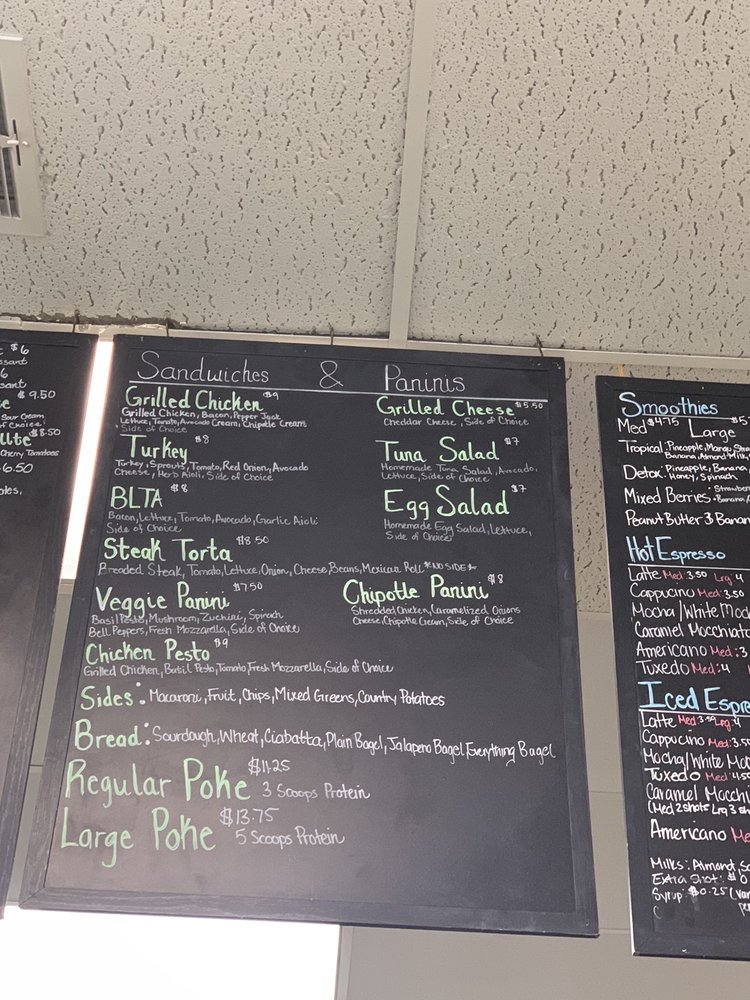 $6
ssant
6
sant
$9.50
Sour Cream
of Choice
$8.50
Cherry Tomatoes
6.50
Sandwiches & Paninis
Grilled Chicken $9
Grilled Chicken, Bacon, Pepper Jack
Lettuce, Tomato, Avocado Cream, Chipotle Cream
Side of Choice
Turkey $8
Turkey, Sprouts, Tomato, Red Onion, Avocado
Cheese, Herb Aioli, Side of Choice
BLTA $8
Bacon, Lettuce, Tomato, Avocado, Garlic Aioli
Side of Choice
Steak Torta $8.50
Breaded Steak, Tomato, Lettuce, Onion, Cheese, Beans, Mexican Roll *NO SIDE*
Veggie Panini $7.50
Basil Pesto, Mushroom, Zuchini, Spinach
Bell Peppers, Fresh Mozzarella, Side of Choice
Chicken Pesto $9
Grilled Chicken, Basil Pesto, Tomato, Fresh Mozzarella, Side of Choice
Grilled Cheese $5.50
Cheddar Cheese, Side of Choice
Tuna Salad $7
Homemade Tuna Salad, Avocado,
Lettuce, Side of Choice
Egg Salad $7
Homemade Egg Salad, Lettuce,
Side of Choice
Chipotle Panini $8
Shredded Chicken, Caramelized Onions
Cheese, Chipotle Cream, Side of Choice
Sides: Macaroni, Fruit, Chips, Mixed Greens, Country Potatoes
Bread: Sourdough, Wheat, Ciabatta, Plain Bagel, Jalapeno Bagel, Everything Bagel
Regular Poke $11.25 3 Scoops Protein
Large Poke $13.75 5 Scoops Protein
Smoothies
Med $4.75 Large $5
Tropical: Pineapple, Mango, Straw
Banana, Almond Milk,
Detox: Pineapple, Banana,
Honey, Spinach
Mixed Berries • Strawberr
• Banana,
Peanut Butter & Banan
Hot Espresso
Latte Med: 3.50 Lrg: 4
Cappucino Med: 3.50
Mocha/White Moc
Caramel Macchiat
Americano Med: 3
Tuxedo Med: 4
Iced Espre
Latte Med: 3.50 Lrg: 4
Cappucino Med: 3.50
Mocha/White Moc
Tuxedo Med: 4.50
Caramel Macchi
(Med 2 shots Lrg 3 sh
Americano Me
Milks: Almond, So
Extra Shot: $0
Syrup: $0.25 (Van